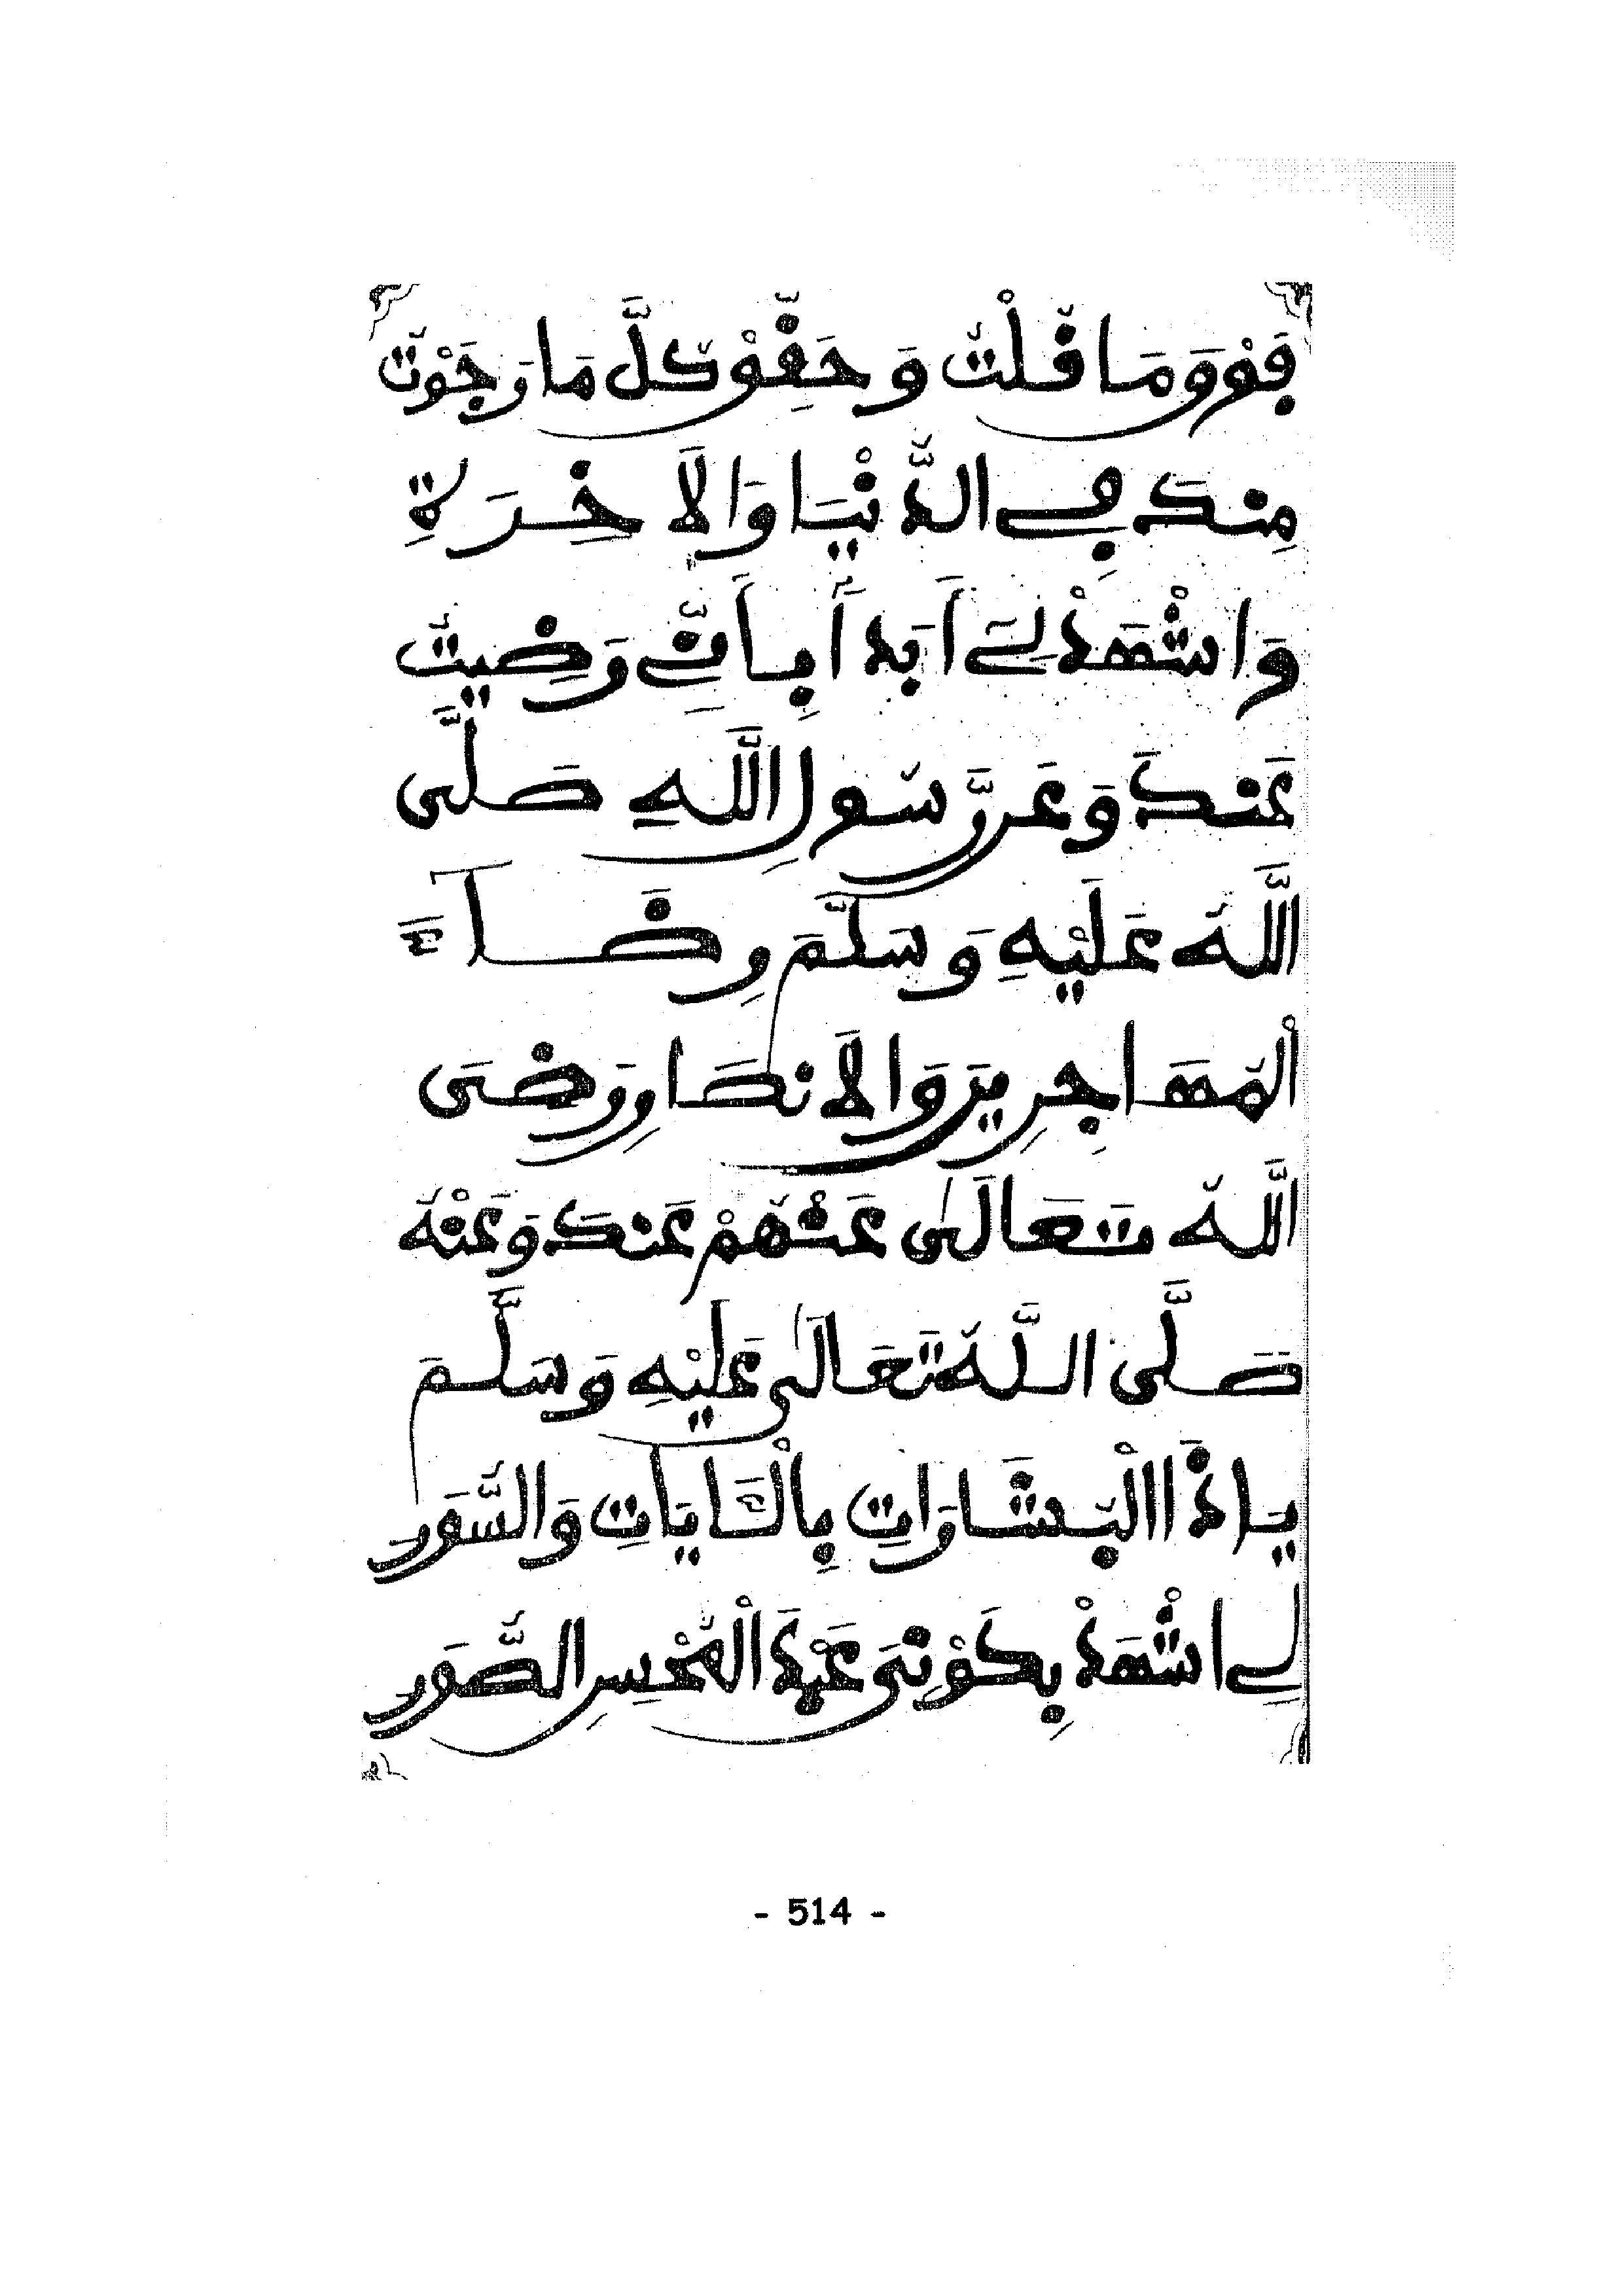 فَوْقَ مَا قُلْتُ وَحَقِّقْ كُلَّ مَا رَجَوْتُ
مِنْكَ فِي الدُّنْيَا وَالَاخِرَةِ
وَاشْهَدْ لِي أَبَدًا بِأَنِّي رَضِيتُ
عَنْكَ وَعَن رَّسُولِ اللَّهِ صَلَّى
اللَّهُ عَلَيْهِ وَسَلَّمَ رِضَاءَ
الْمُهَاجِرِينَ وَالَانصَارِ رَضِيَ
اللَّهُ تَعَالَى عَنْهُمْ عَنْكَ وَعَنْهُ
صَلَّى اللَّهُ تَعَالَى عَلَيْهِ وَسَلَّمَ
يَا ذَا الْبُشَارَاتِ بِالْآيَاتِ وَالسُّوَرِ
لِي اشْهَدْ بِكَوْنِيَ عَبْدَ الْمُحْسِنِ الصُّوَرِ
- 514 -